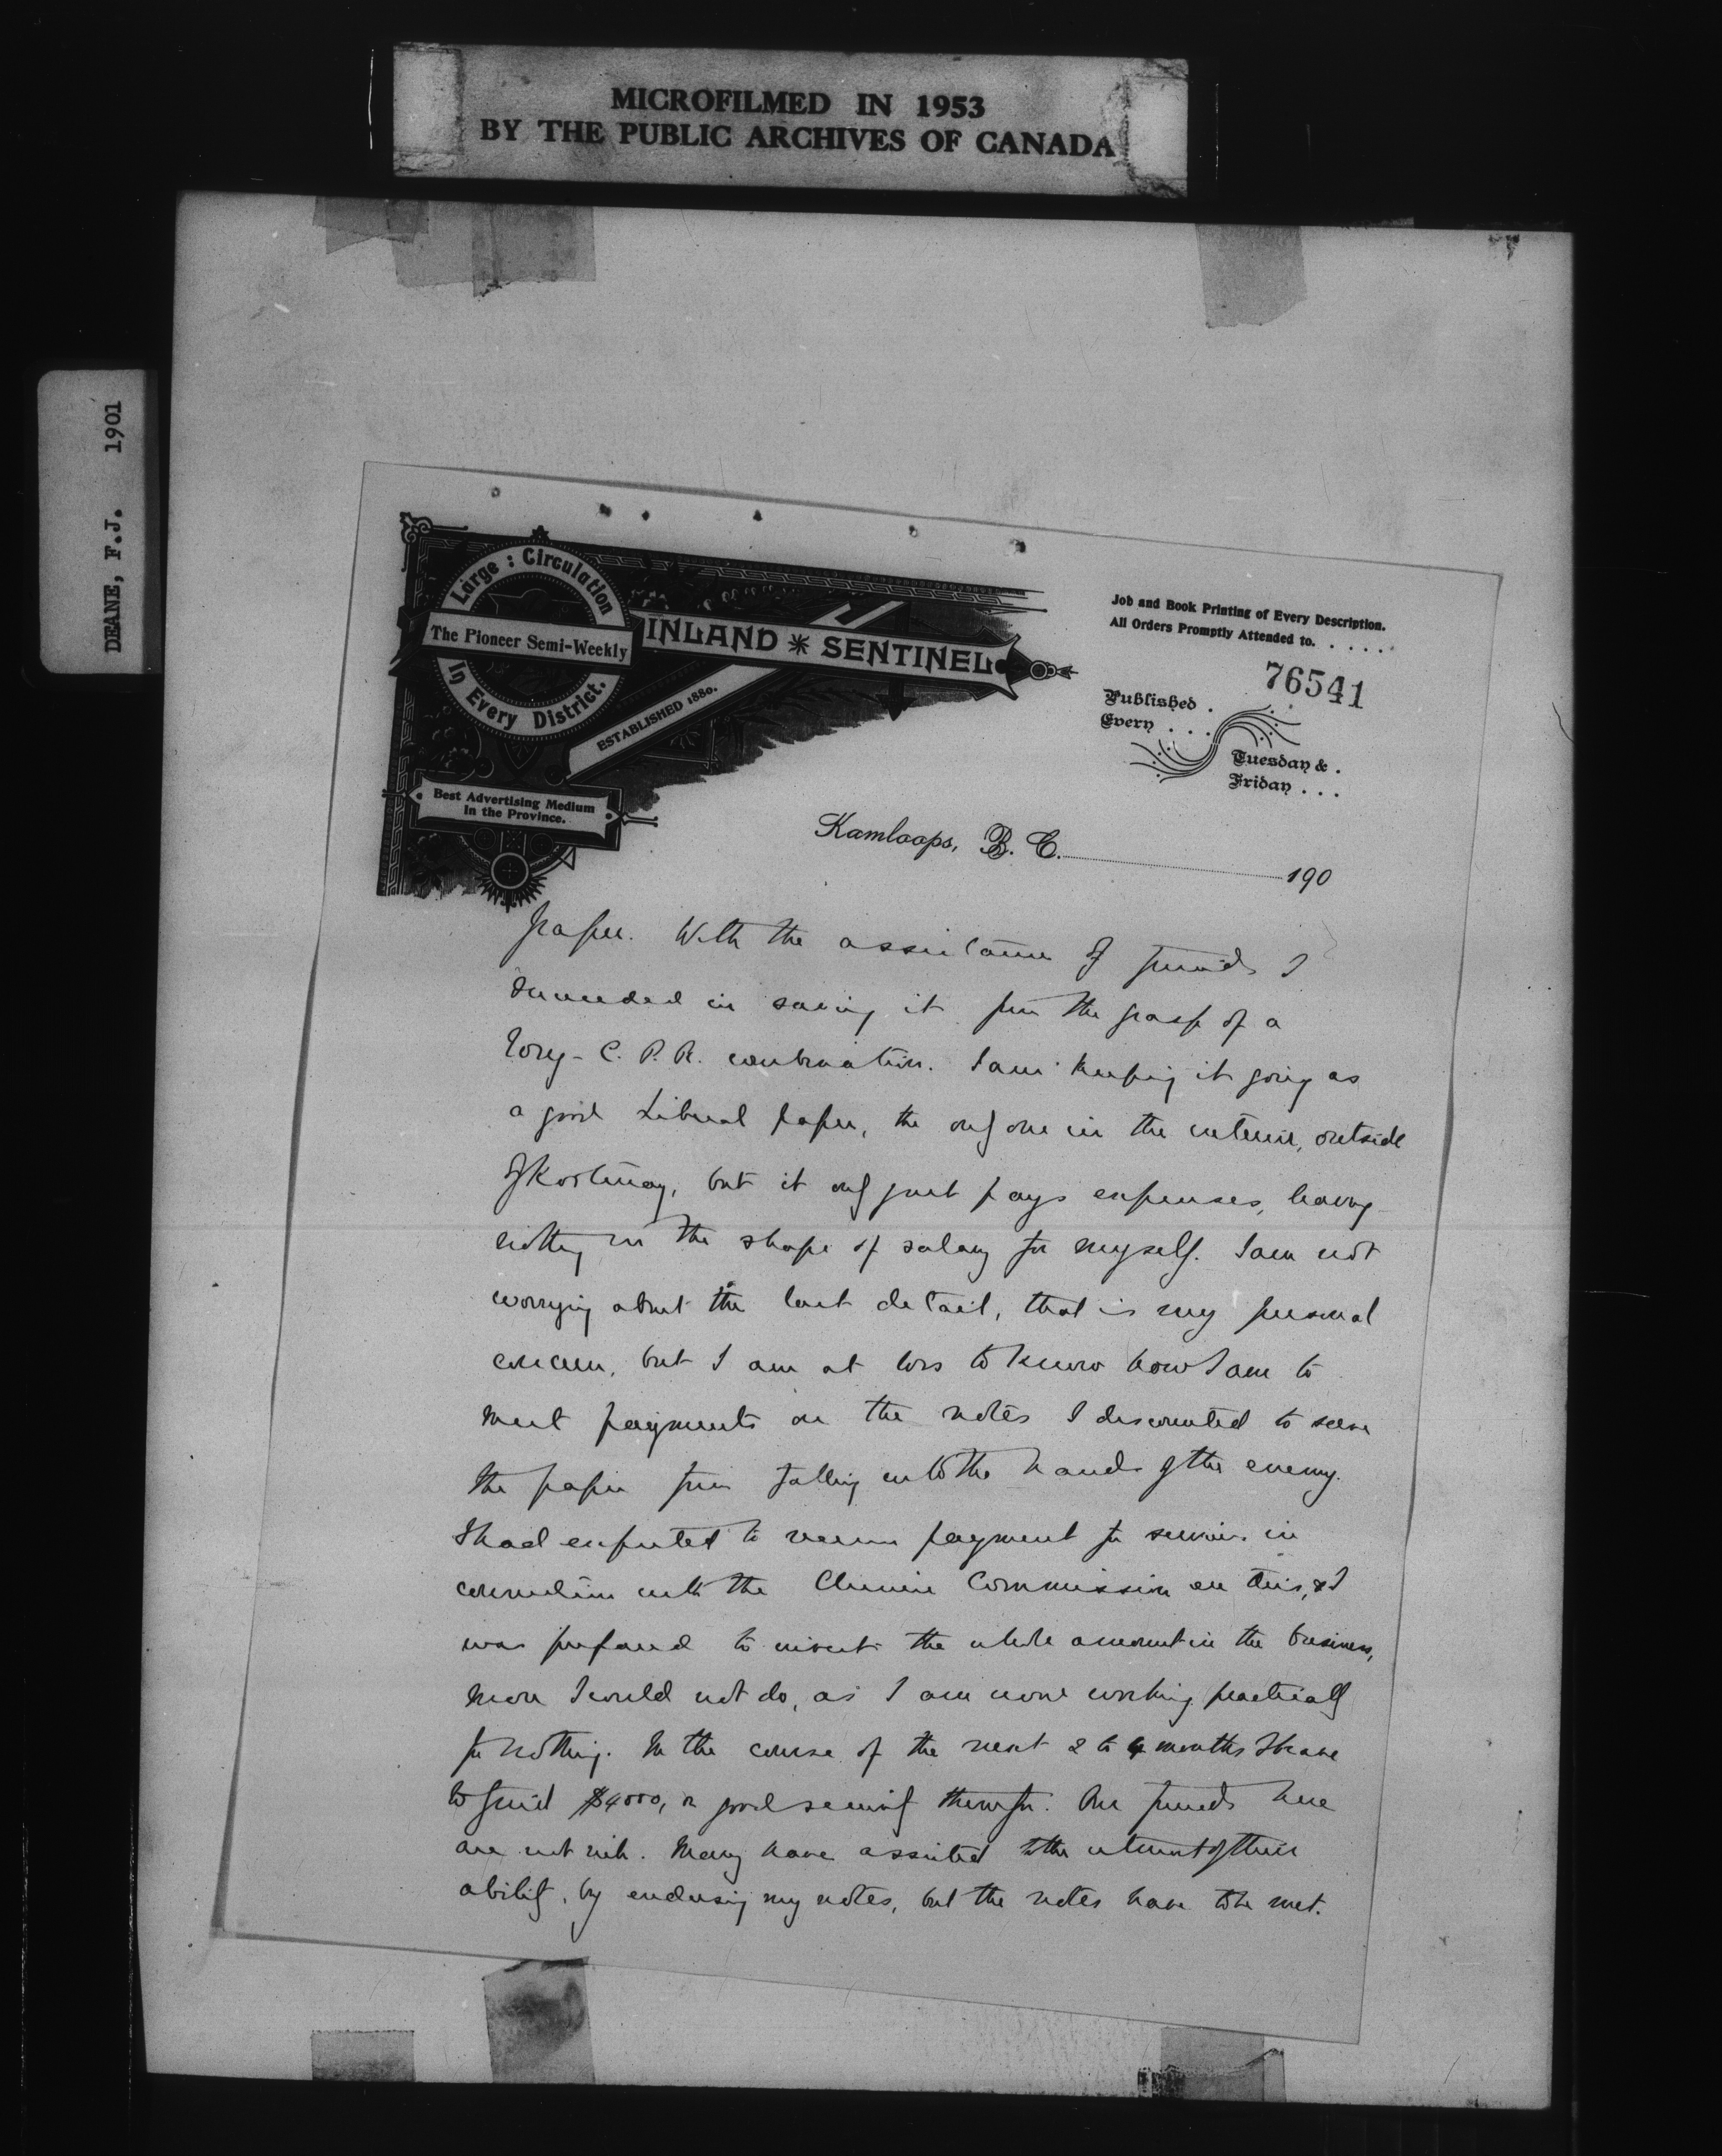 MICROFILMED IN 1953
BY THE PUBLIC ARCHIVES OF CANADA
DEANE, F.J. 1901
Large : Circulation
The Pioneer Semi-Weekly
In Every District.
INLAND SENTINEL
ESTABLISHED 1880.
Best Advertising Medium
In the Province.
Job and Book Printing of Every Description.
All Orders Promptly Attended to. . . . . .
76541
Published .
Every . . .
Tuesday & .
Friday . . .
Kamloops, B. C. 190
paper. With the assistance of friends I
succeeded in saving it from the grasp of a
Tory - C. P. R. combination. I am keeping it going as
a good Liberal paper, the only one in the interior, outside
of Kootenay, but it only just pays expenses, leaving
nothing in the shape of salary for myself. I am not
worrying about the last detail, that is my personal
concern, but I am at loss to know how I am to
meet payments on the notes I discounted to save
the paper from falling into the hands of the enemy.
I had expected to receive payment for services in
connection with the Chinese Commission ere this, & I
was prepared to invest the whole amount in the business,
more I could not do, as I am now working practically
for nothing. In the course of the next 2 to 4 months I have
to find $4000, or good security therefor. Our friends here
are not rich. Many have assisted to the utmost of their
ability, by endorsing my notes, but the notes have to be met.